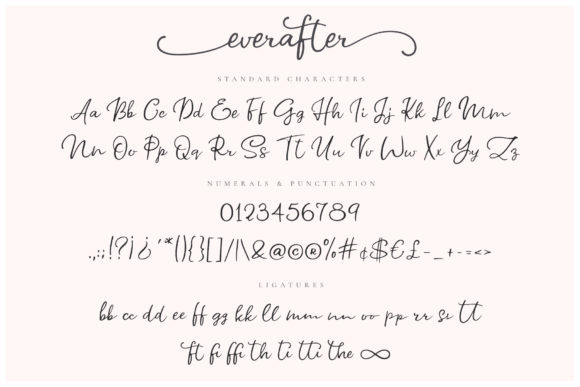 everafter
STANDARD CHARACTERS
Aa Bb Cc Dd Ee Ff Gg Hh Ii Jj Kk Ll Mm
Nn Oo Pp Qq Rr Ss Tt Uu Vv Ww Xx Yy Zz
NUMERALS & PUNCTUATION
0123456789
.,:;!?¡¿'"*(){}[]/|\&@©®%#¢$€£-_+-=<>
LIGATURES
bb cc dd ee ff gg kk ll mm nn oo pp rr ss tt
ft fi ffi th ti tti the ∞